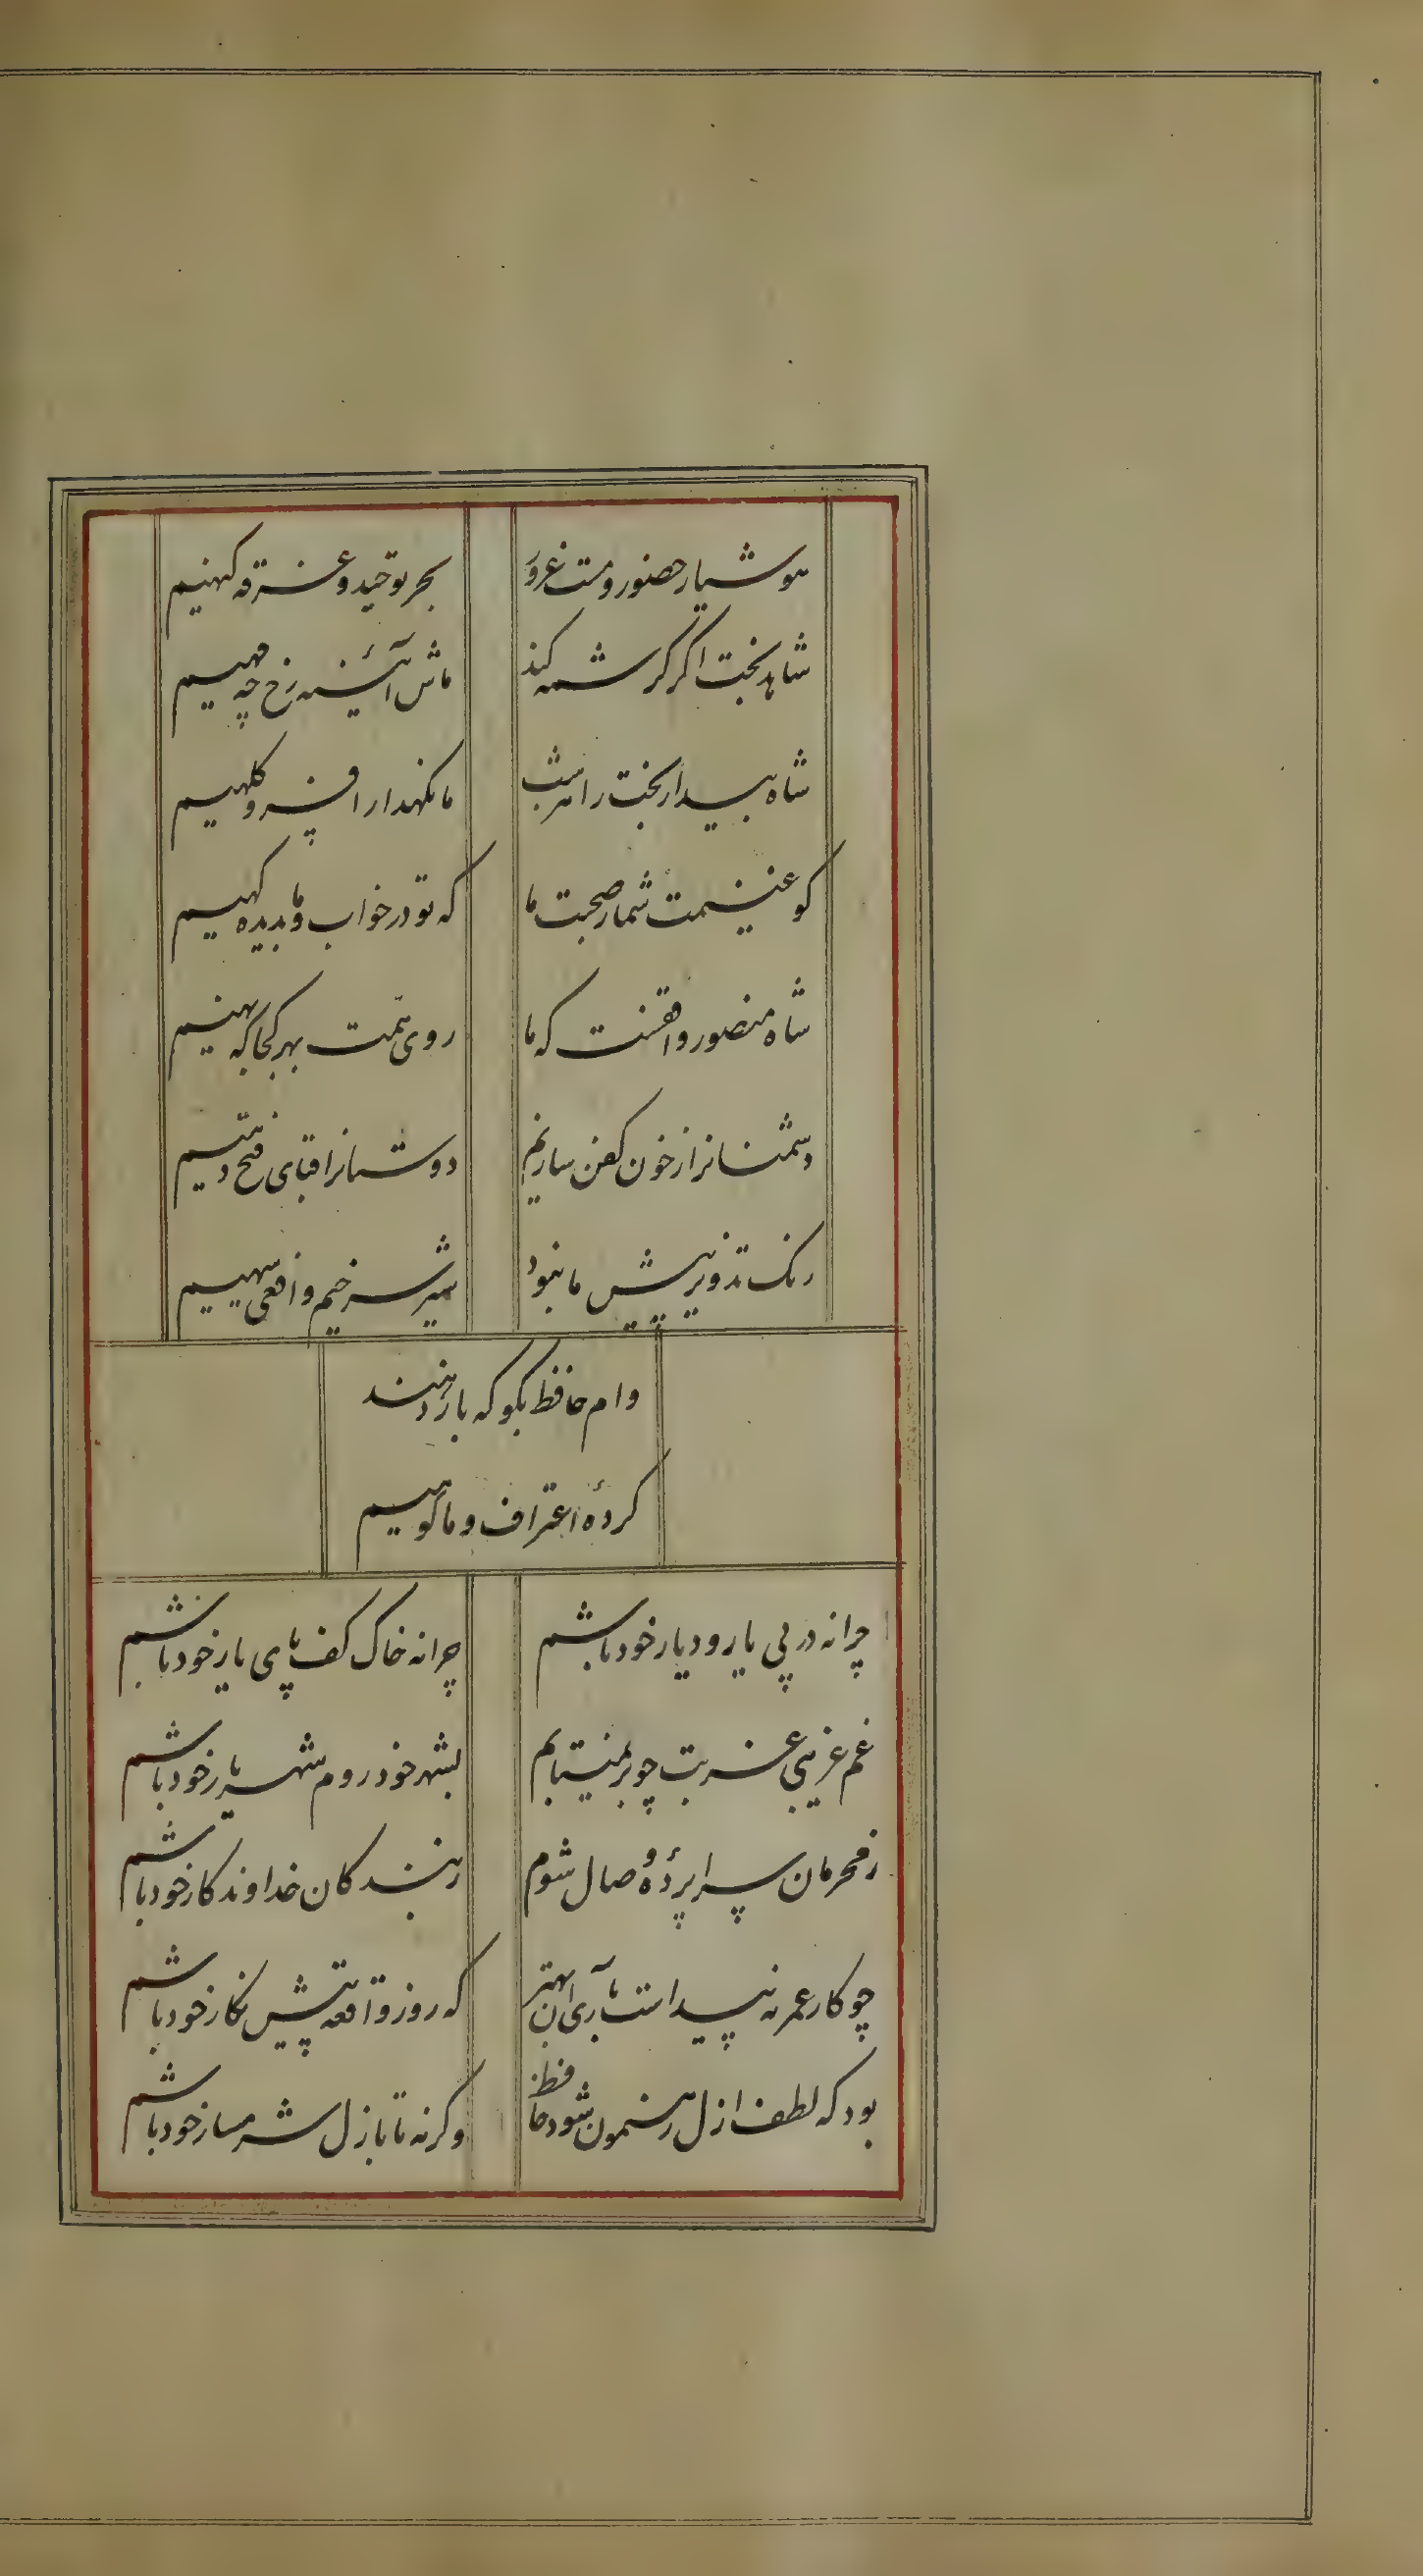 هوشیار حضور و مست غرور بحر توحید و غرقه گنهیم
شاهد بخت اگر کرشمه کند ماش آئینه رخ چو مهیم
شاه بیدار بخت را هر شب ما نکهدار افسر و کلهیم
کو غنیمت شمار صحبت ما که تو در خواب و ما بدیده کهیم
شاه منصور واقفست که ما روی همت بهر کجا که نهیم
دشمنانرا ز خون کفن سازیم دوستانرا قبای فتح دهیم
رنک تذویر پیش ما نبود شیر سرخیم و افعی سیهیم
وام حافظ بکو که باز دهند
کردهٔ اعتراف و ما کوهیم
چرا نه در پی یار و دیار خود باشم چرا نه خاک کف پای یار خود باشم
غم غریبی غربت چو بر نمیتابم بشهر خود روم شهریار خود باشم
ز محرمان سراپردهٔ وصال شوم ز بندکان خداوندکار خود باشم
چو کار عمر نه پیداست باری آن بهتر که روز واقعه پیش نکار خود باشم
بود که لطف ازل رهنمون شود حافظ وکرنه تا بازل شرمسار خود باشم